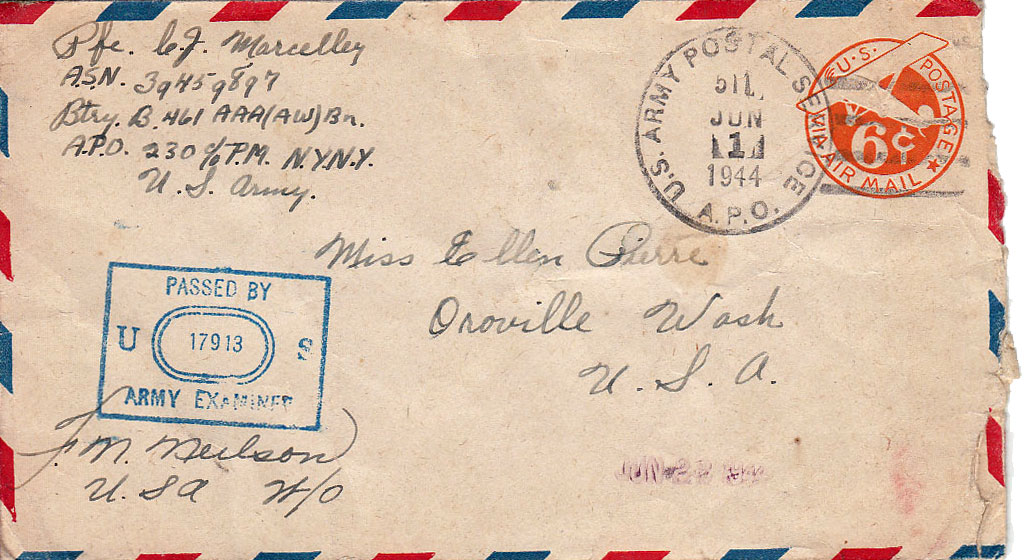 Pfc. C.J. Marcelley
A.S.N. 39459897
Btry. B. 461 AAA(AW)Bn.
A.P.O. 230 c/o P.M. N.Y.N.Y.
U. S. Army.
U.S. ARMY POSTAL SERVICE
JUN
1
1944
A.P.O.
U.S. POSTAGE
6¢
VIA AIR MAIL
Miss Ellen Pierre
Oroville Wash
U. S. A.
PASSED BY
U 17913 S
ARMY EXAMINER
F. M. Neilson
U. S A